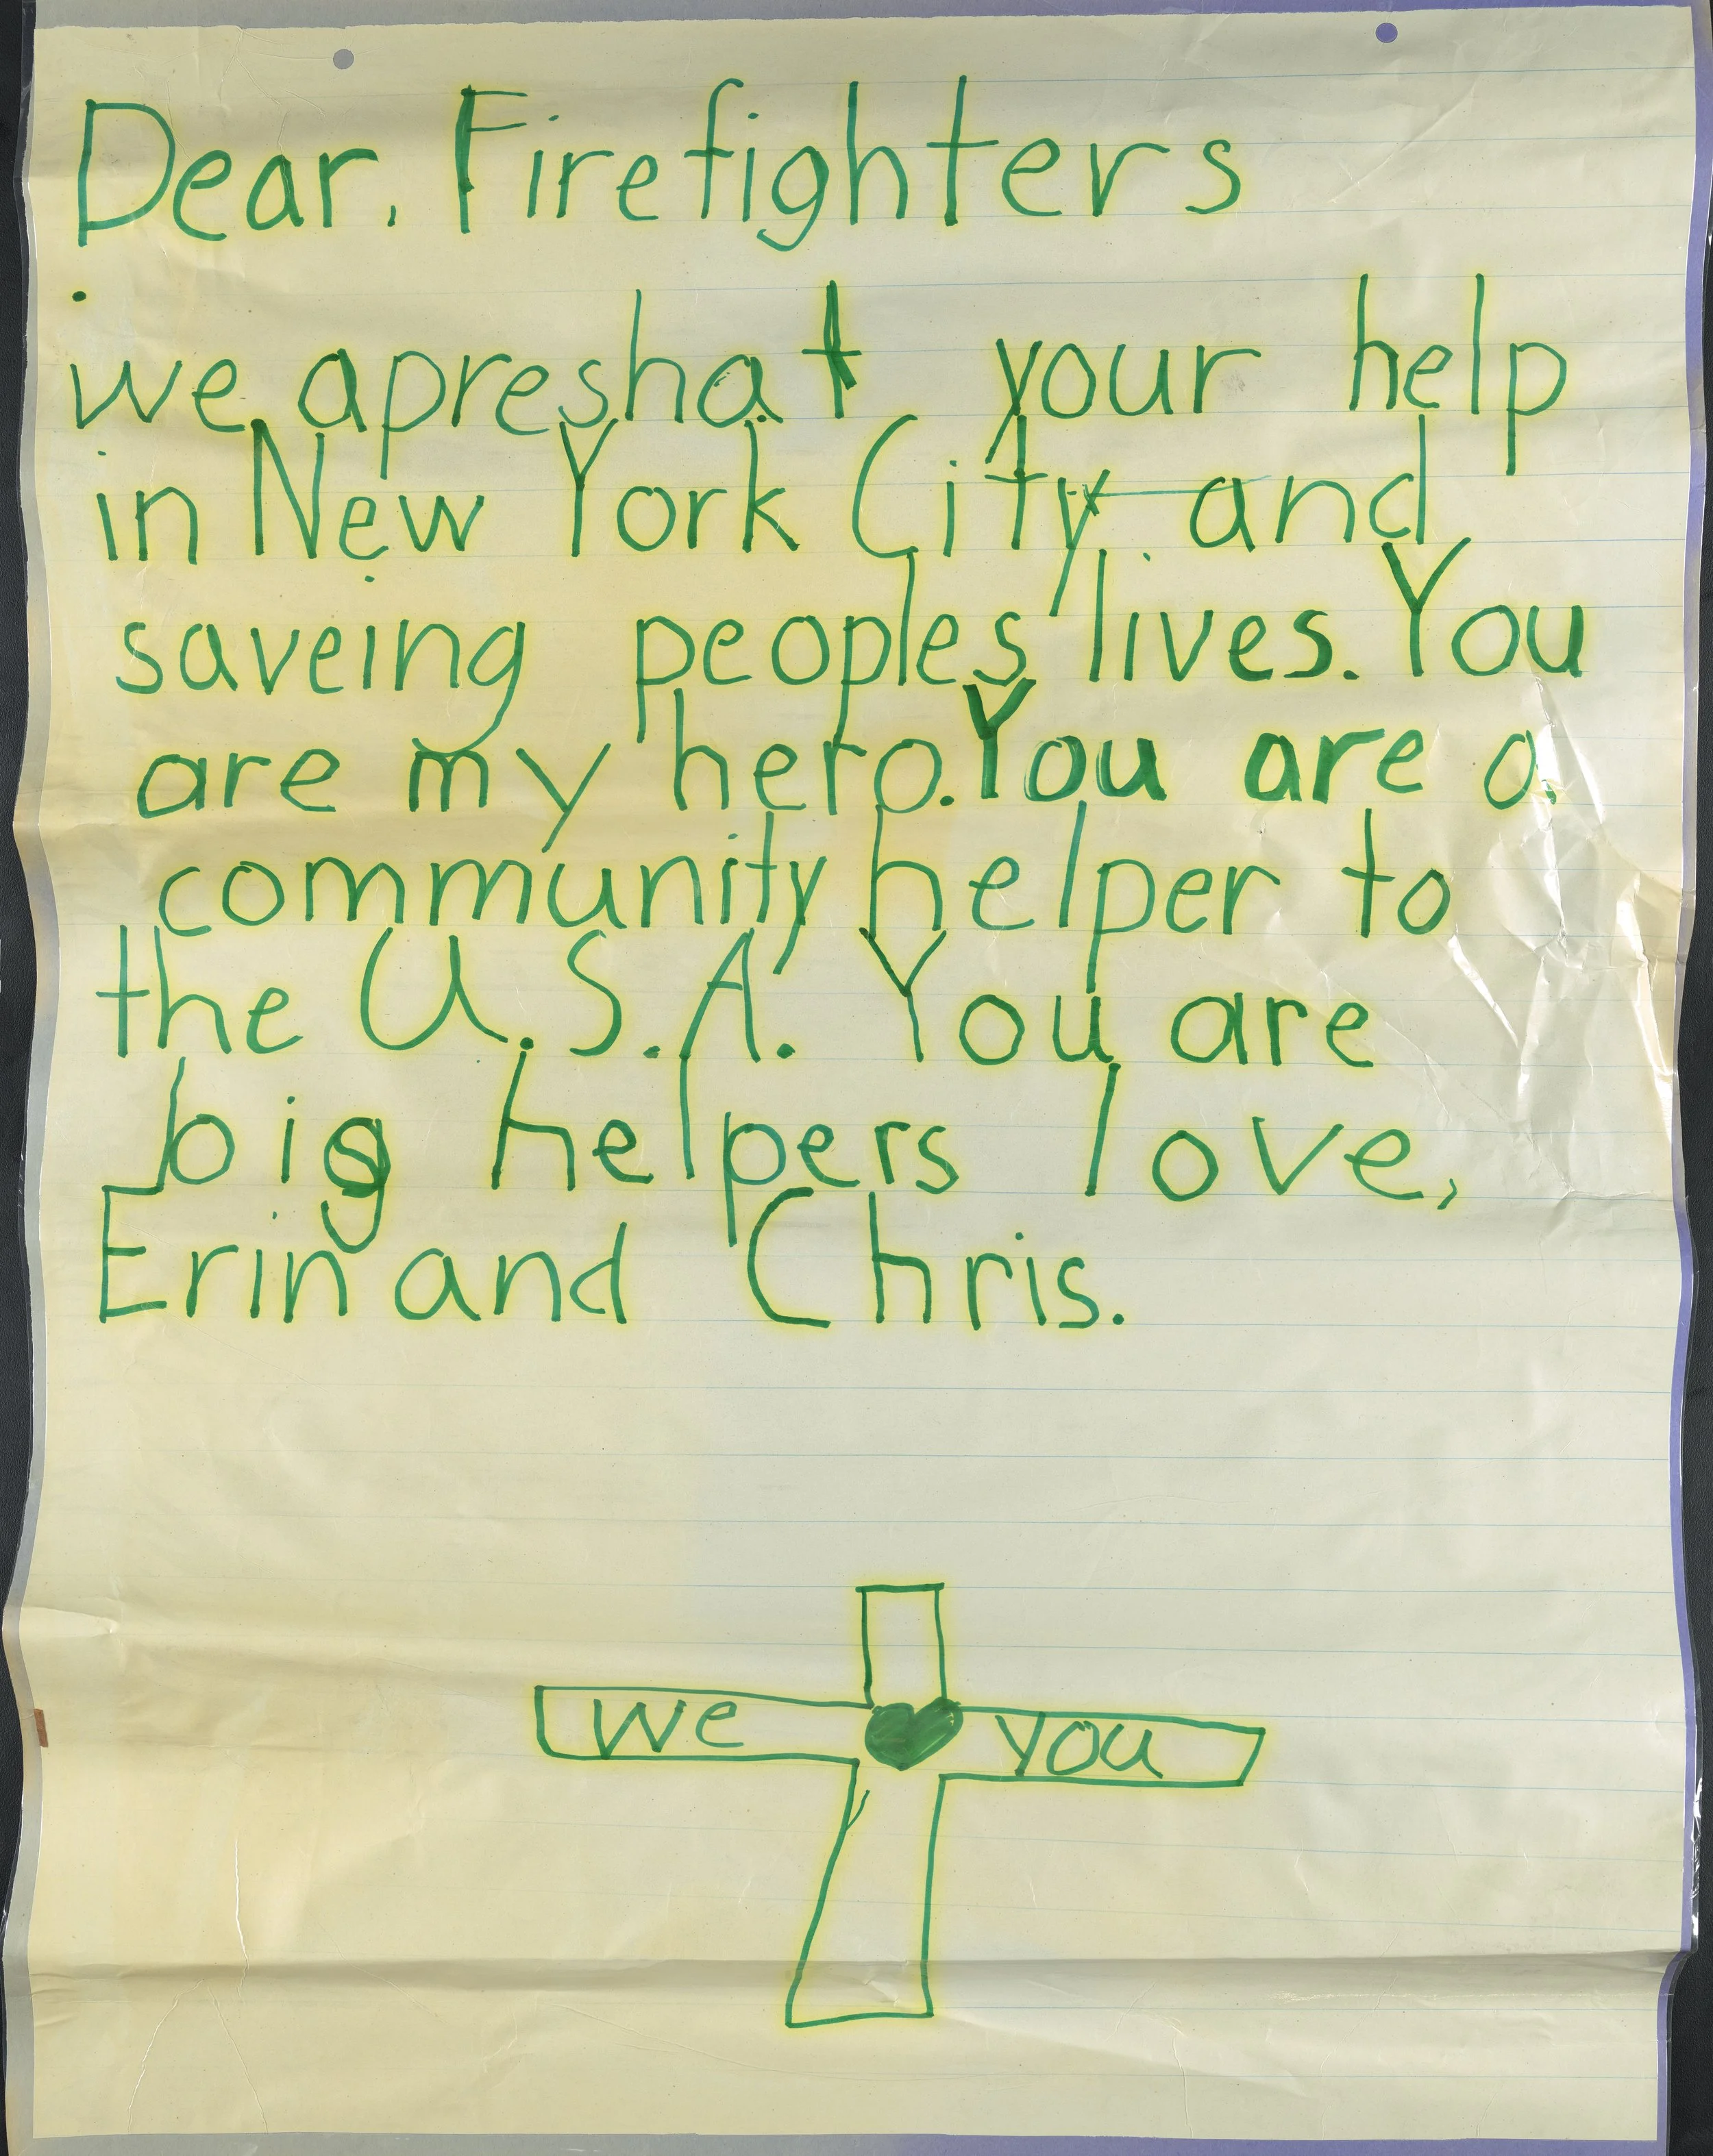 Dear, Firefighters
we apreshat your help
in New York City and
saveing peoples lives. You
are my hero. You are a
community helper to
the U.S.A. You are
big helpers love,
Erin and Chris.
we you